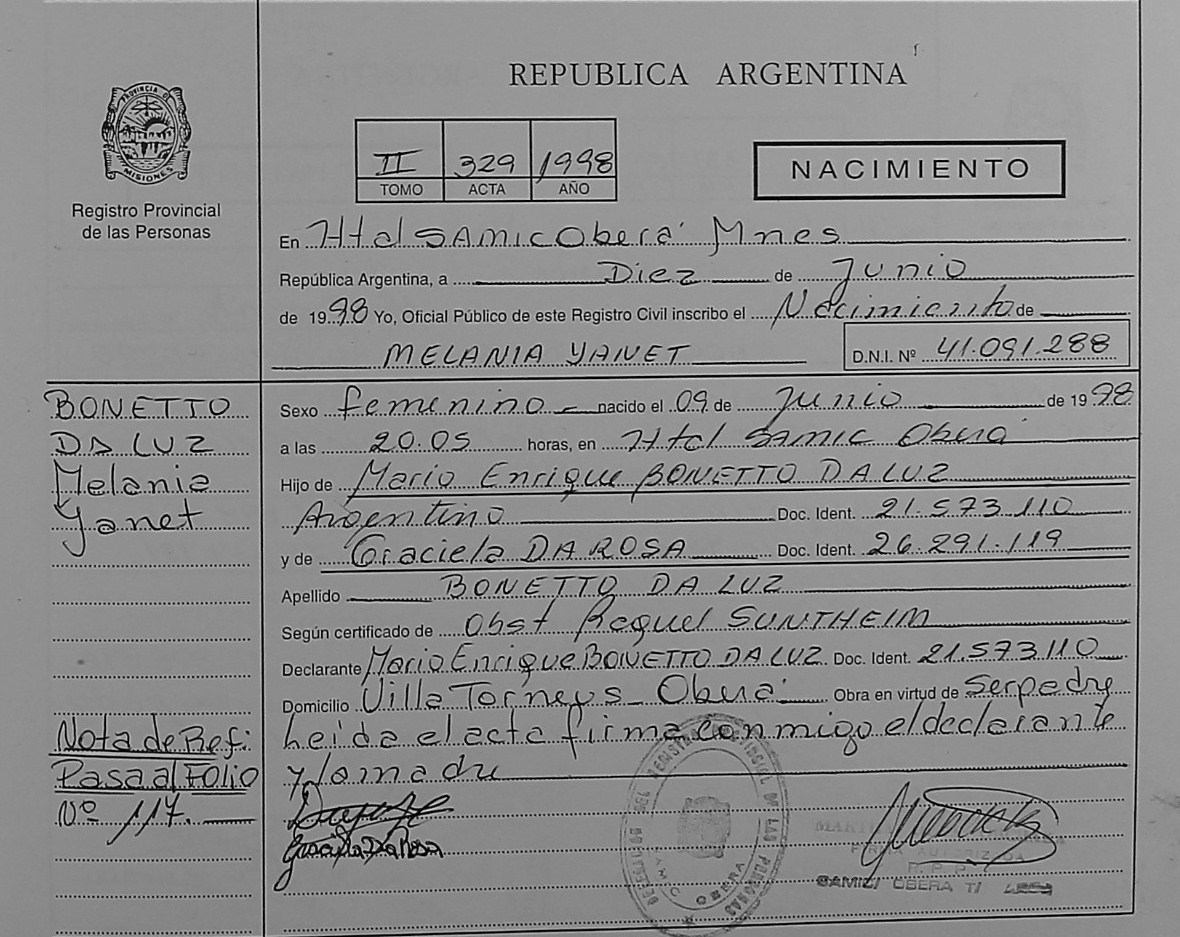 REPUBLICA ARGENTINA
PROVINCIA DE
MISIONES
Registro Provincial
de las Personas
II 329 1998
TOMO ACTA AÑO
NACIMIENTO
En Htal SAMIC Oberá Mnes
República Argentina, a Diez de Junio
de 1998 Yo, Oficial Público de este Registro Civil inscribo el Nacimiento de
MELANIA YANET D.N.I. Nº 41.091.288
BONETTO
DA LUZ
Melania
Yanet
Nota de Ref:
Pasa al FOLIO
Nº 117.
Sexo femenino nacido el 09 de Junio de 1998
a las 20.05 horas, en Htal SAMIC Oberá
Hijo de Mario Enrique BONETTO DA LUZ
Argentino Doc. Ident. 21.573.110
y de Graciela DA ROSA Doc. Ident. 26.291.119
Apellido BONETTO DA LUZ
Según certificado de Obst Raquel SUNTHEIM
Declarante Mario Enrique BONETTO DA LUZ Doc. Ident. 21.573.110
Domicilio Villa Torneus Oberá Obra en virtud de Ser padre
Leida el acta firma conmigo el declarante
y la madre
Graciela Da Rosa
OBERA
R. P. P.
SAMIC OBERA